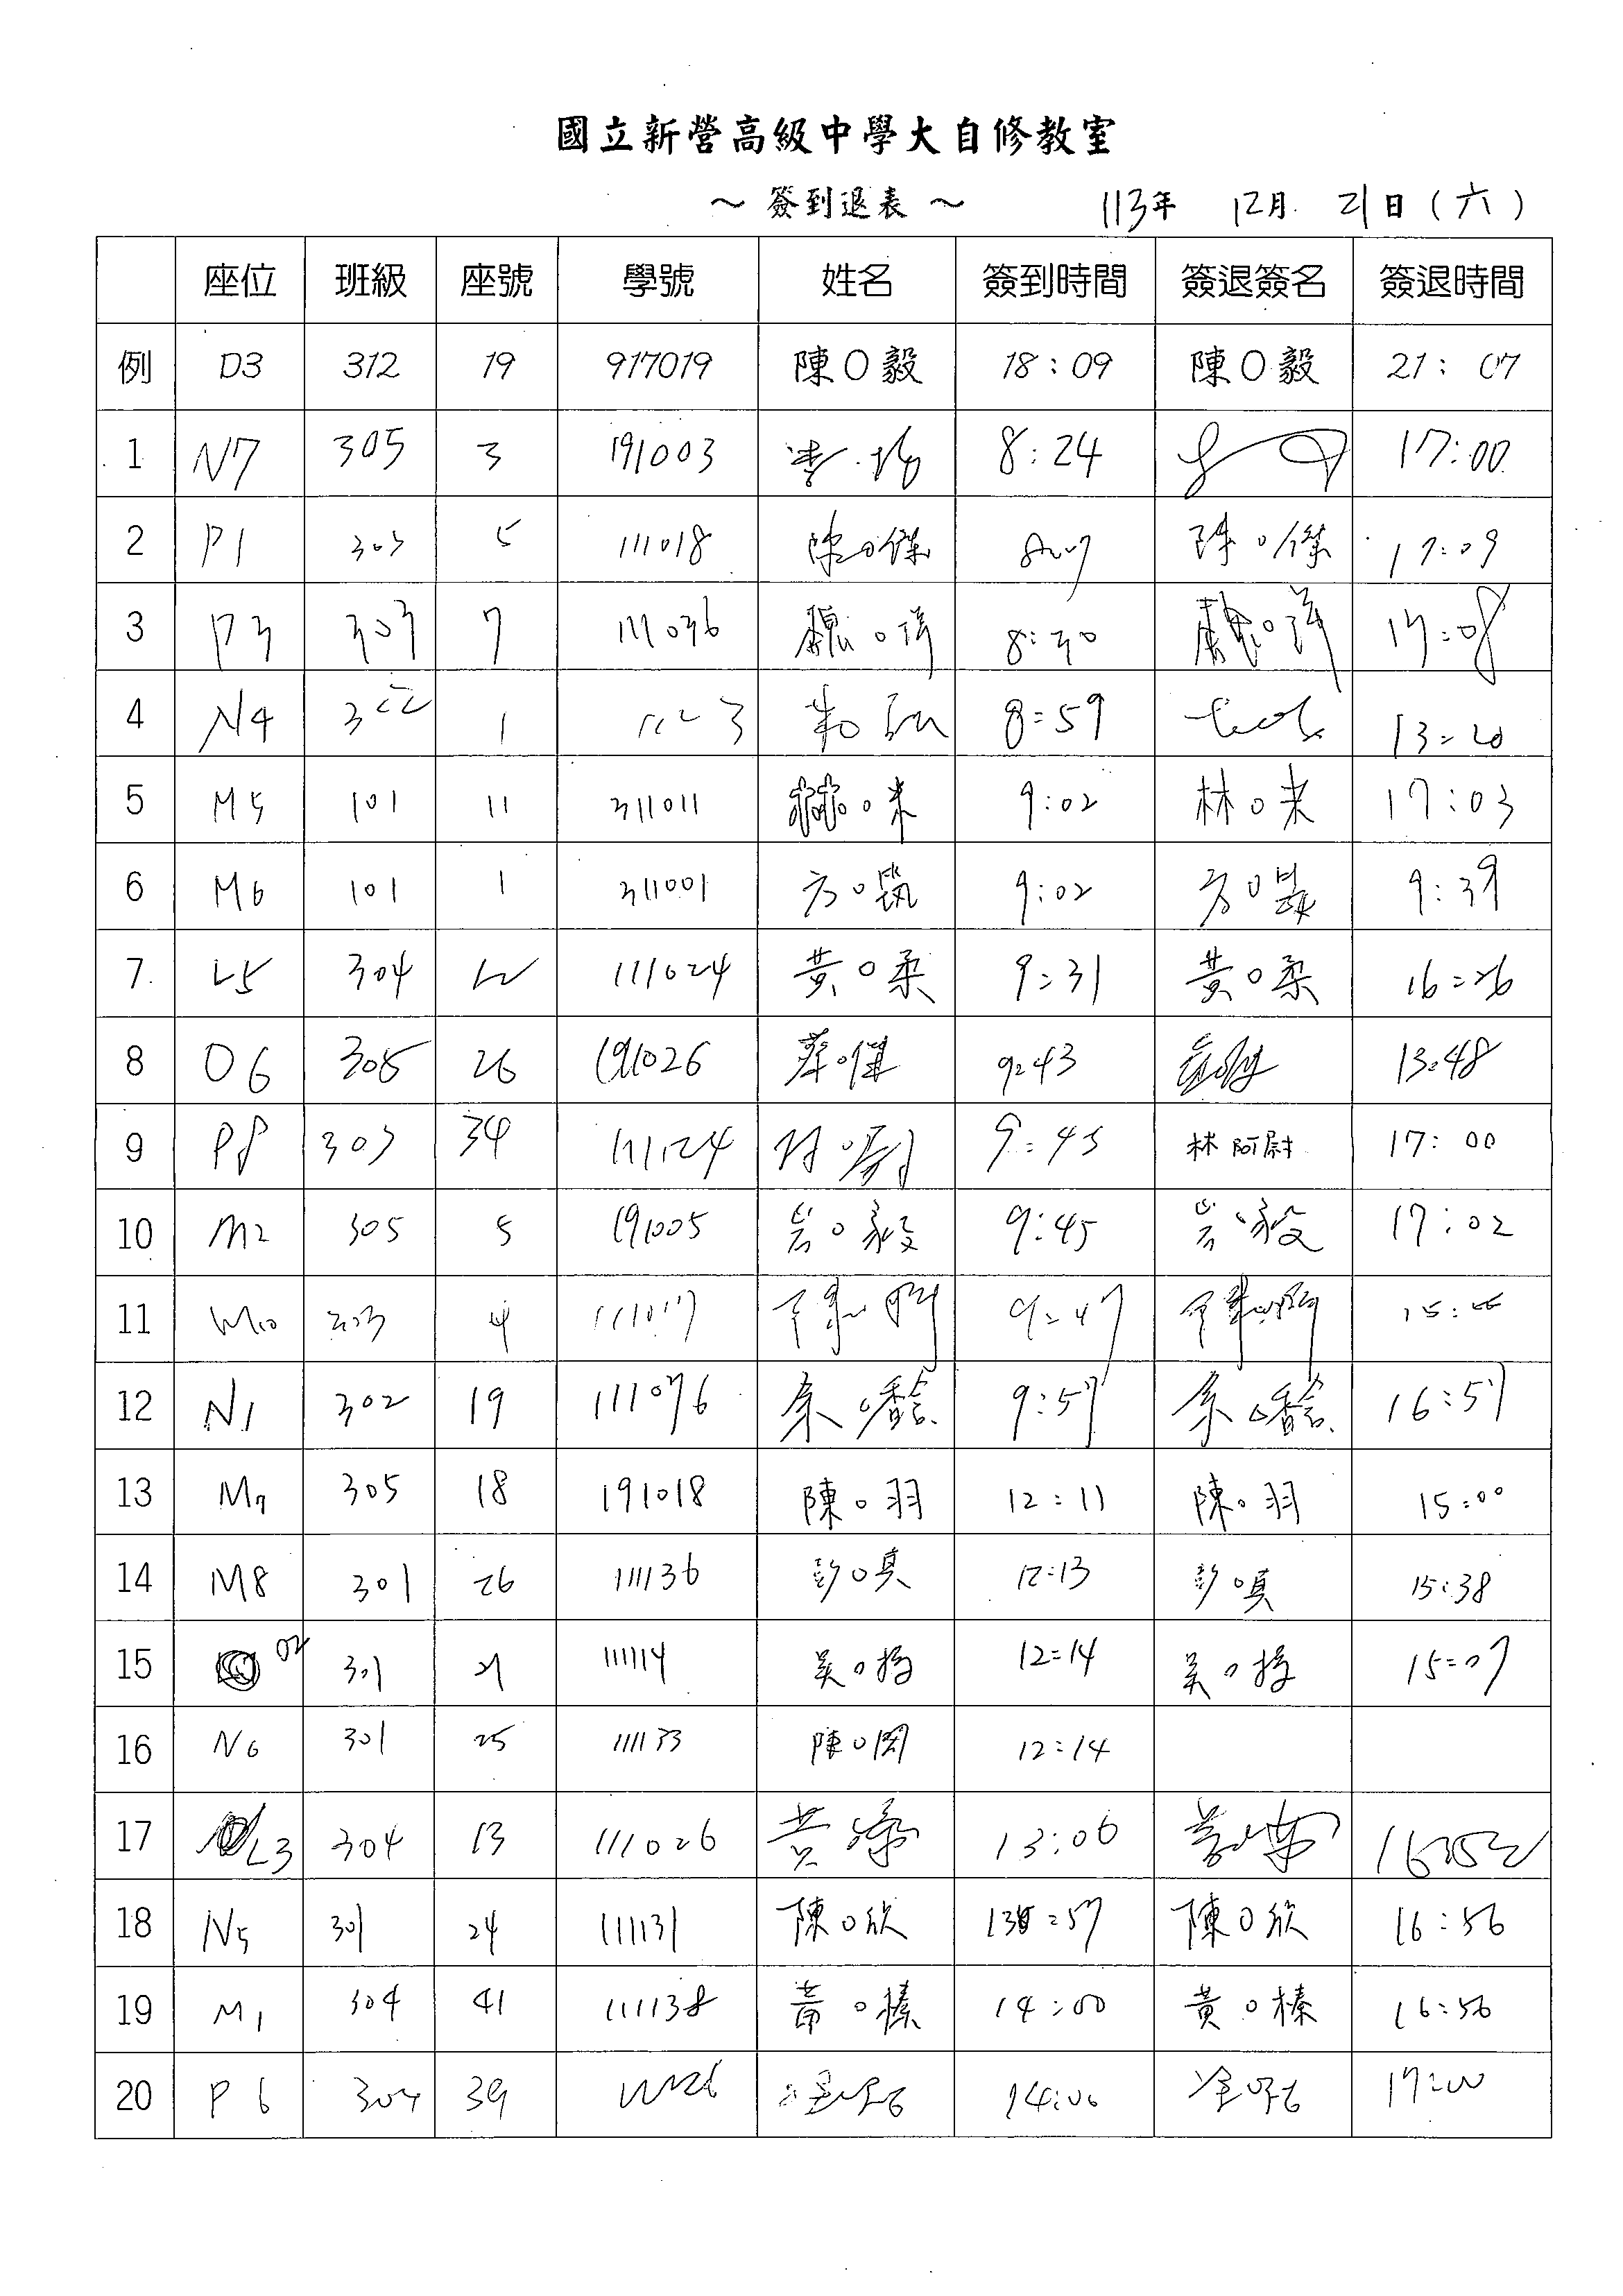 國立新營高級中學大自修教室
～ 簽到退表 ～ 113年 12月 21日(六)
座位 班級 座號 學號 姓名 簽到時間 簽退簽名 簽退時間
例 D3 312 19 917019 陳O毅 18:09 陳O毅 21:07
1 N7 305 3 191003 8:24 17:00
2 P1 303 5 111018 陳O傑 陳O傑 17:09
3 P3 303 7 111036 魏O祥 8:30 魏O祥 17:08
4 N4 322 1 8:59 13:20
5 M5 101 11 311011 林O米 9:02 林O米 17:03
6 M6 101 1 311001 方O筑 9:02 9:39
7 L5 304 12 111024 黃O柔 9:31 黃O柔 16:26
8 O6 305 26 191026 蔡O 9:43 13:48
9 P8 303 34 111124 9:45 林阿尉 17:00
10 M2 305 5 191005 O毅 9:45 O毅 17:02
11 M10 303 4 111017 9:47 15:
12 N1 302 19 111076 余O馨 9:57 余O馨 16:57
13 M7 305 18 191018 陳O羽 12:11 陳O羽 15:00
14 M8 301 26 111136 彭O真 12:13 彭O真 15:38
15 O2 301 21 111114 吳O 12:14 吳O 15:07
16 N6 301 25 111133 陳O 12:14
17 L3 304 13 111026 黃O 13:06 16:52
18 N5 301 24 111131 陳O欣 13:57 陳O欣 16:56
19 M1 304 41 111138 黃O榛 14:00 黃O榛 16:56
20 P6 304 39 14:06 17:00